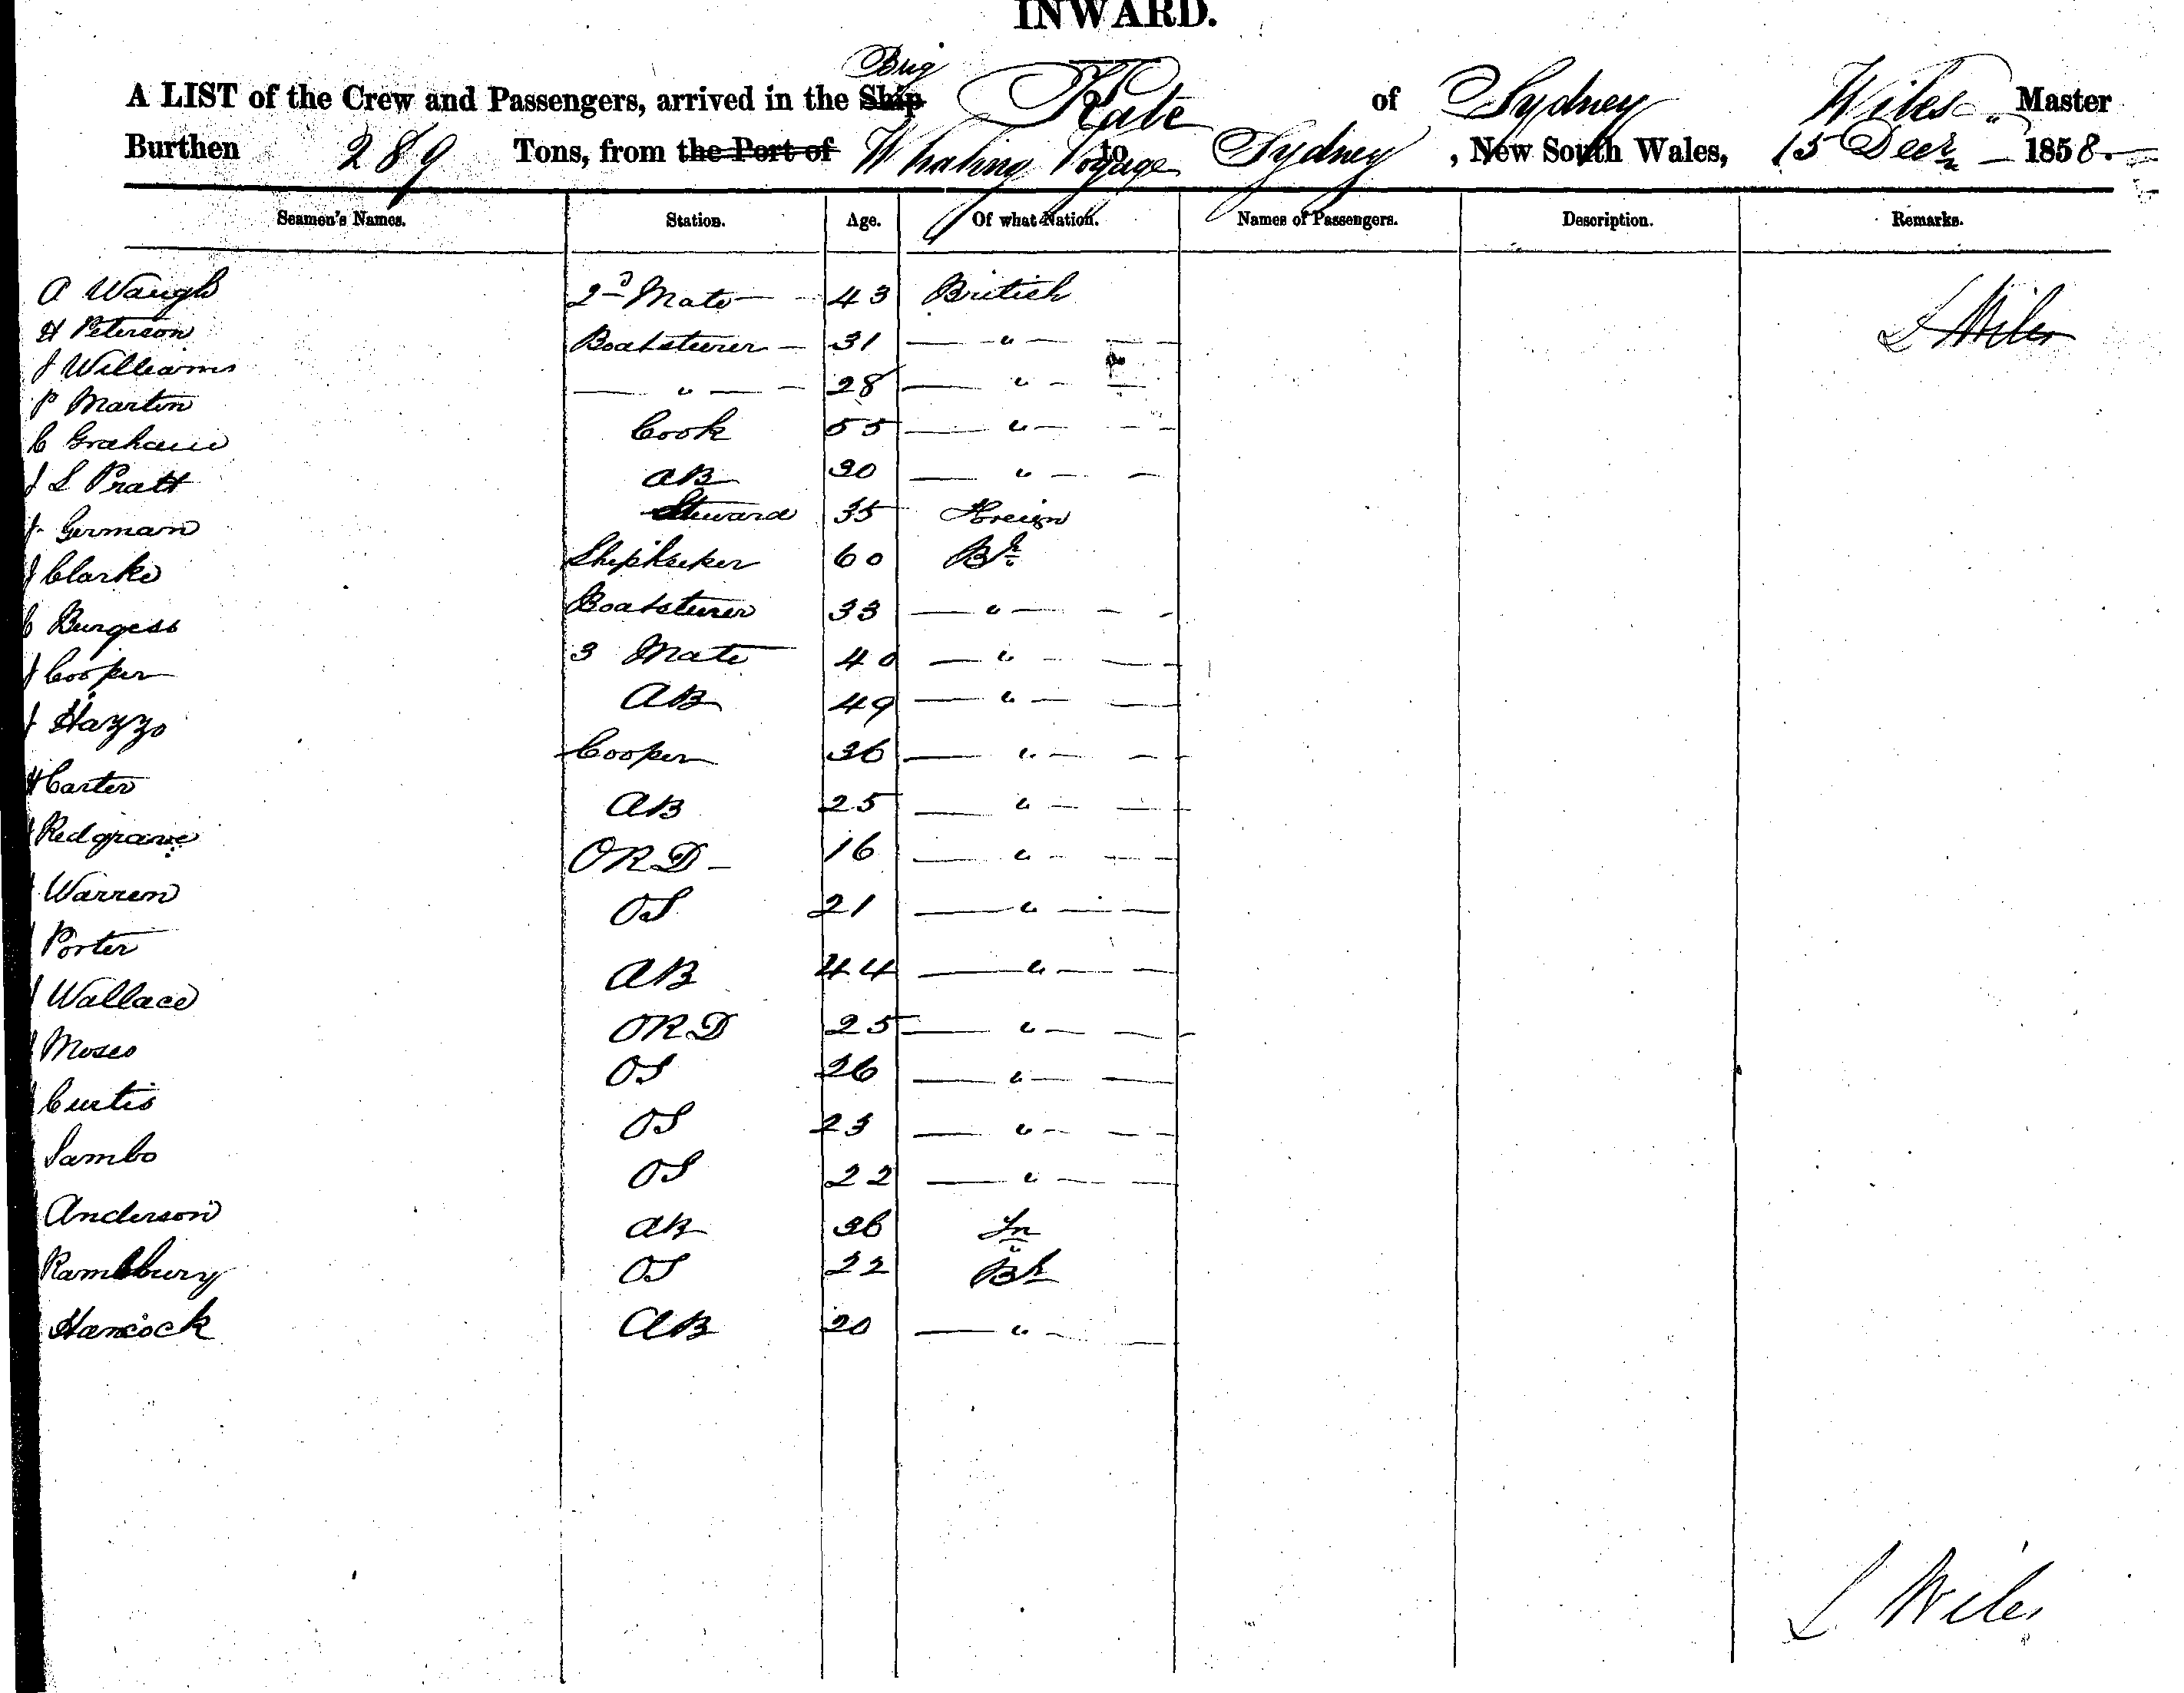 INWARD.
Brig
A LIST of the Crew and Passengers, arrived in the Ship Kate of Sydney Wiles Master
Burthen 289 Tons, from the Port of Whaling Voyage to Sydney, New South Wales, 15 Decr 1858.
Seamen's Names. Station. Age. Of what Nation. Names of Passengers. Description. Remarks.
A Waugh 2d Mate 43 British
H Peterson Boatsteurer 31 — " — L Wiles
J Williams — " — 28 — " —
P Martin Cook 55 — " —
C Graham AB 30 — " —
J S Pratt Steward 35 Foreign
J. German Shipkeeker 60 Bh
J Clarke Boatsteurer 33 — " —
C Burgess 3 Mate 40 — " —
J Cooper AB 49 — " —
J Hazzo Cooper 36 — " —
H Carter AB 25 — " —
Redgrave ORD 16 — " —
Warren OS 21 — " —
Porter AB 44 — " —
Wallace ORD 25 — " —
Moses OS 26 — " —
Curtis OS 23 — " —
Sambo OS 22 — " —
Anderson AB 36 Fn
Ramsbury OS 22 Bh
Hancock AB 20 — " —
L Wiles